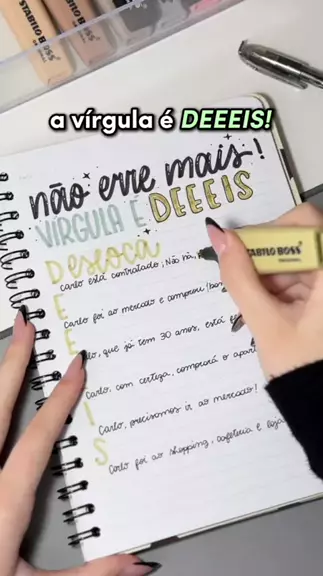 STABILO BOSS
a vírgula é DEEEIS!
não erre mais!
VÍRGULA É DEEEIS
Desloca
Carlo está contratado, Não há,
STABILO BOSS
E
Carlo foi ao mercado e comprou
E
que já tem 30 anos, está
E
Carlo, com certeza, comprará o
I
Carlo, precisamos ir ao mercado!
S
Carlo foi ao shopping, cafeteria e